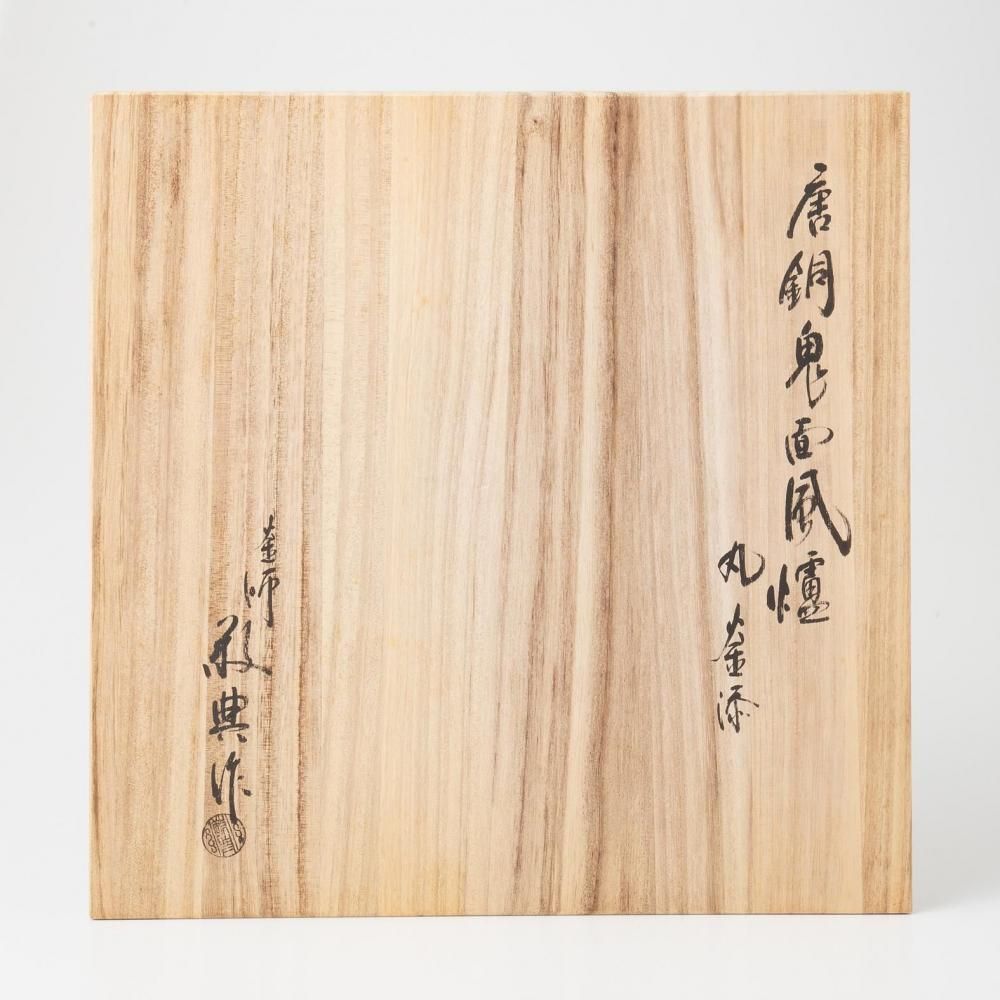 唐銅鬼面風爐
丸釜添
釜師
敬典作